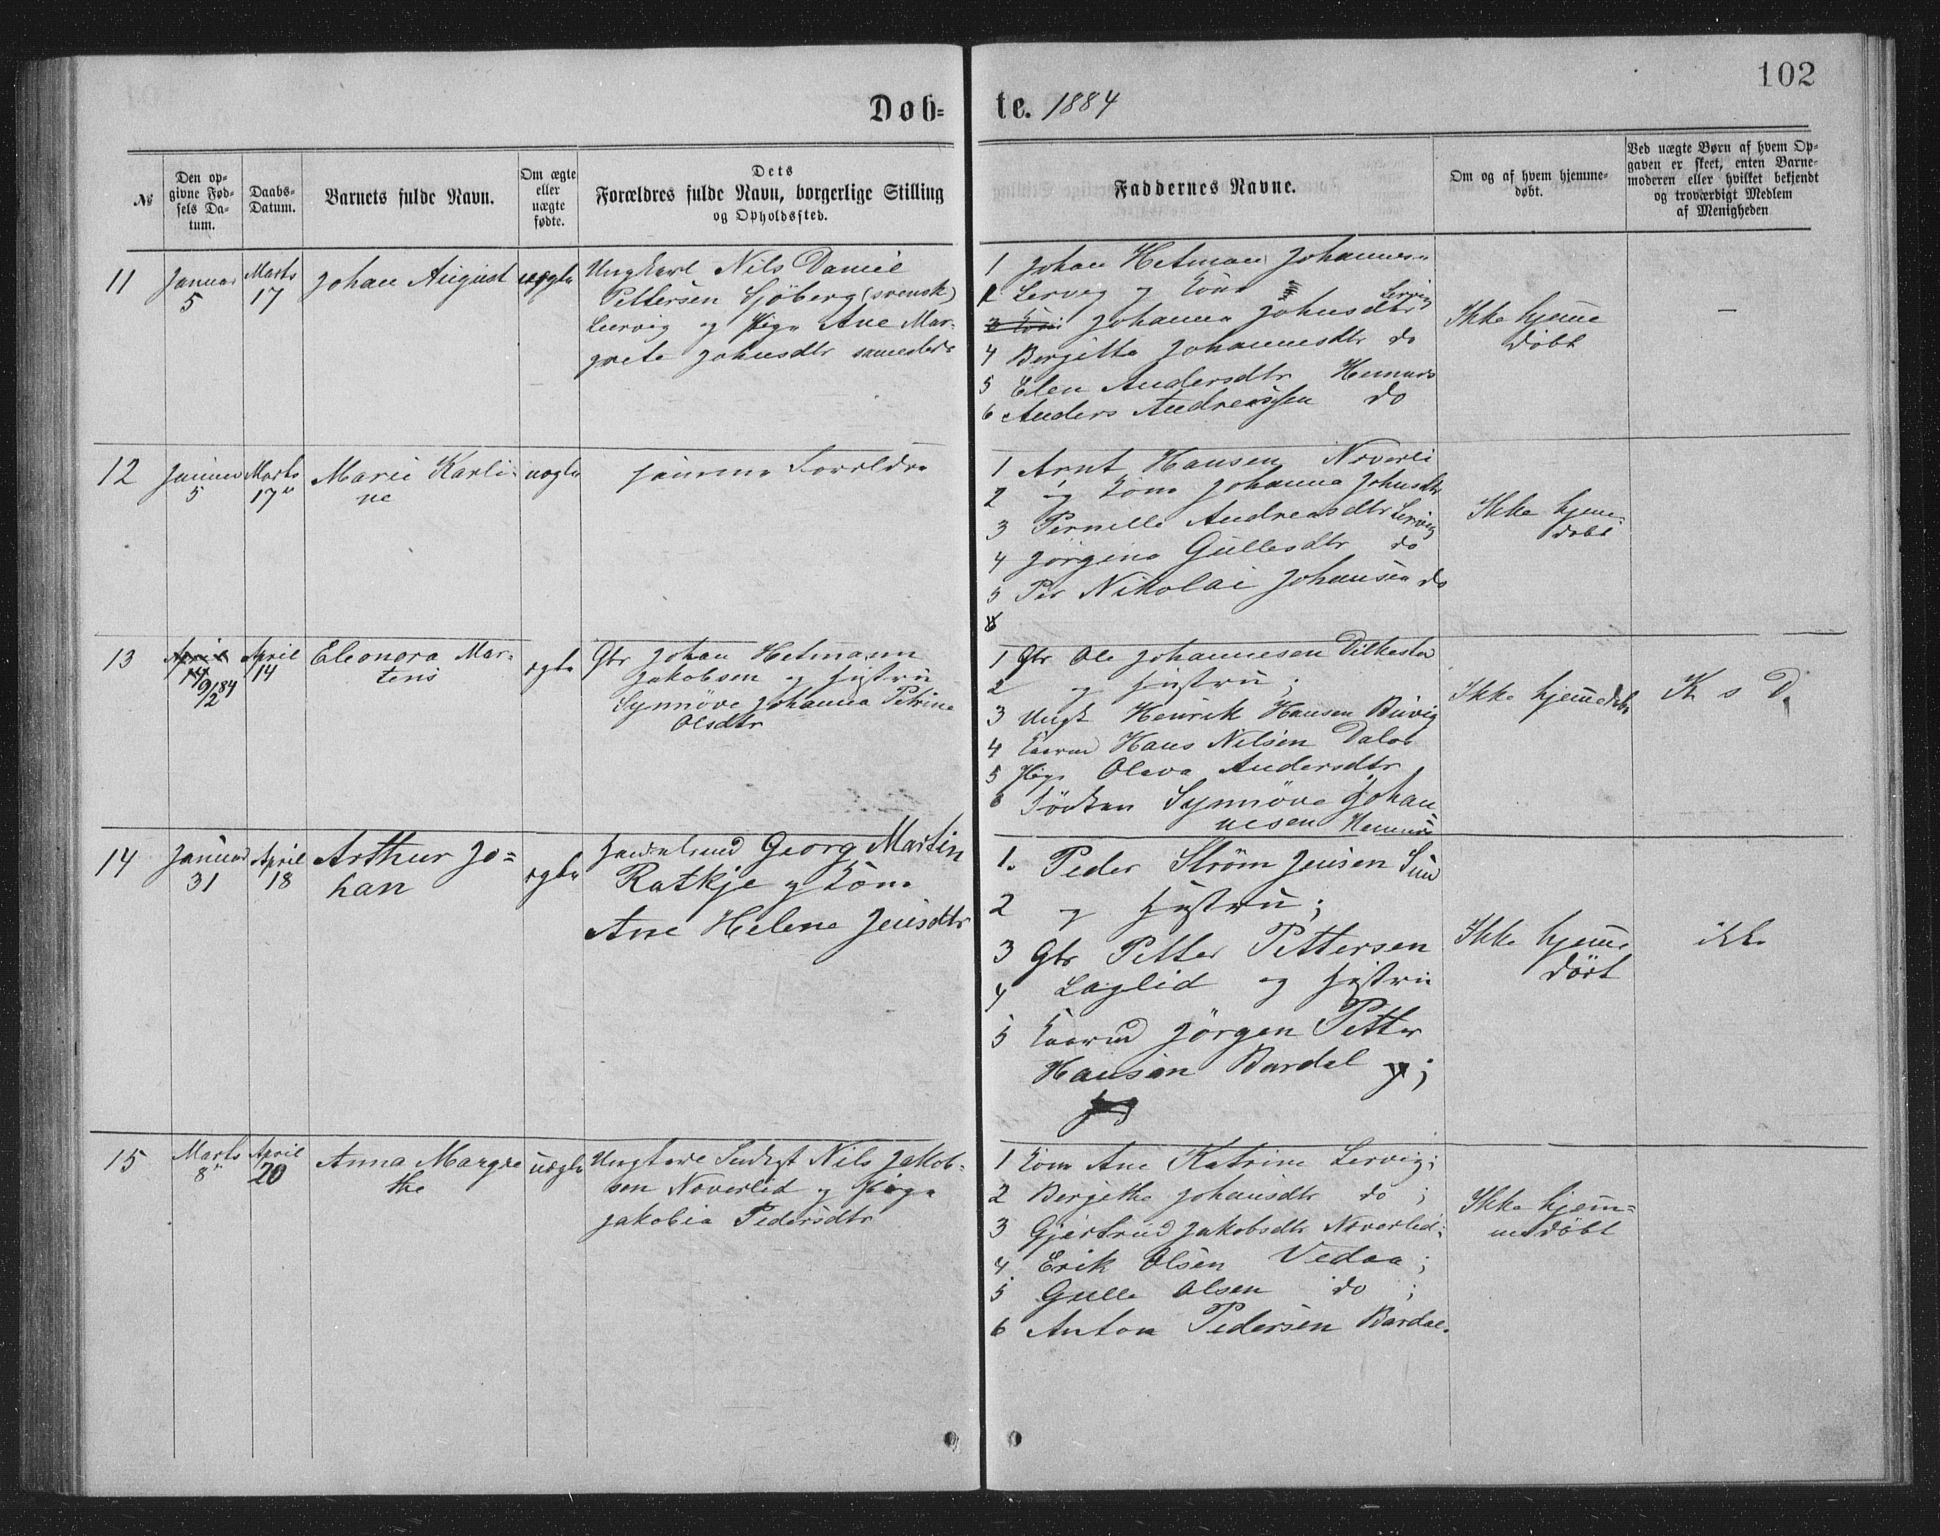 102
Døb= te. 1884
№
Den op-
givne Fød-
sels Da-
tum.
Daabs-
Datum.
Barnets fulde Navn.
Om ægte
eller
uægte
fødte.
Dets
Forældres fulde Navn, borgerlige Stilling
og Opholdssted.
Faddernes Navne.
Om og af hvem hjemme-
døbt.
Ved uægte Børn af hvem Op-
gaven er skeet, enten Barne-
moderen eller hvilket bekjendt
og troværdigt Medlem
af Menigheden
11
Januar
5
Marts
17
Johan August
uægte
Ungkarl Nils Daniel
Pettersen Sjöberg (svensk)
Lervig og Pige Ane Mar-
grete Johnsdtr sammesteds
1 Johan Hetman Johannes-
2 Lervig og Kone
3 Johanna Johnsdtr Lervig
4 Bergitta Johannesdtr do
5 Elen Andersdtr
6 Anders Andreassen do
Ikke hjemme
døbt
–
12
Januar
5
Marts
17"
Marie Karli-
ne
uægte
samme Forældre
1 Arnt Hansen Noverli
2 og Kone Johanna Johnsdtr
3 Pernille Andreasdtr Lervig
4 Jörgine Gullesdtr do
5 Per Nikolai Johansen do
6
Ikke hjem-
døbt
13
April
14
9/2 84
April
14
Eleonora Mar-
tens
ægte
Gbr Johan Hetmann
Jakobsen og Hustru
Synnöve Johanna Petrine
Olsdtr
1 Gbr Ole Johannesen
2 og Hustru;
3 Ungk Henrik Hansen Buvig
4 Kaarmd Hans Nilsen
5 Pige Oleva Andersdtr
6 Synnöve Johan
nesen
Ikke hjemedøbt
K s D
14
Januar
31
April
18
Arthur Jo=
han
ægte
Handelsmd Georg Martin
Ratkje og Kone
Ane Helene Jensdtr
1. Peder Ström Jensen Sund
2 og Hustru;
3 Gbr Petter Pettersen
4 Laglid og Hustru
5 Kaarmd Jörgen Petter
Hansen Bardal og;
Ikke hjeme
døbt
ikke
15
Marts
8"
April
20
Anna Margre
the
uægte
Ungkarl Nils Jakob-
sen Noverlid og Pige
Jakobia Pedersdtr
1 Kone Ane Katrine Lervig;
2 Bergithe Johansdtr do;
3 Gjertrud Jakobsdtr Noverlid;
4 Erik Olsen Vedaa;
5 Gulle Olsen do;
6 Anton Pedersen Bardal.
Ikke hjem=
medøbt